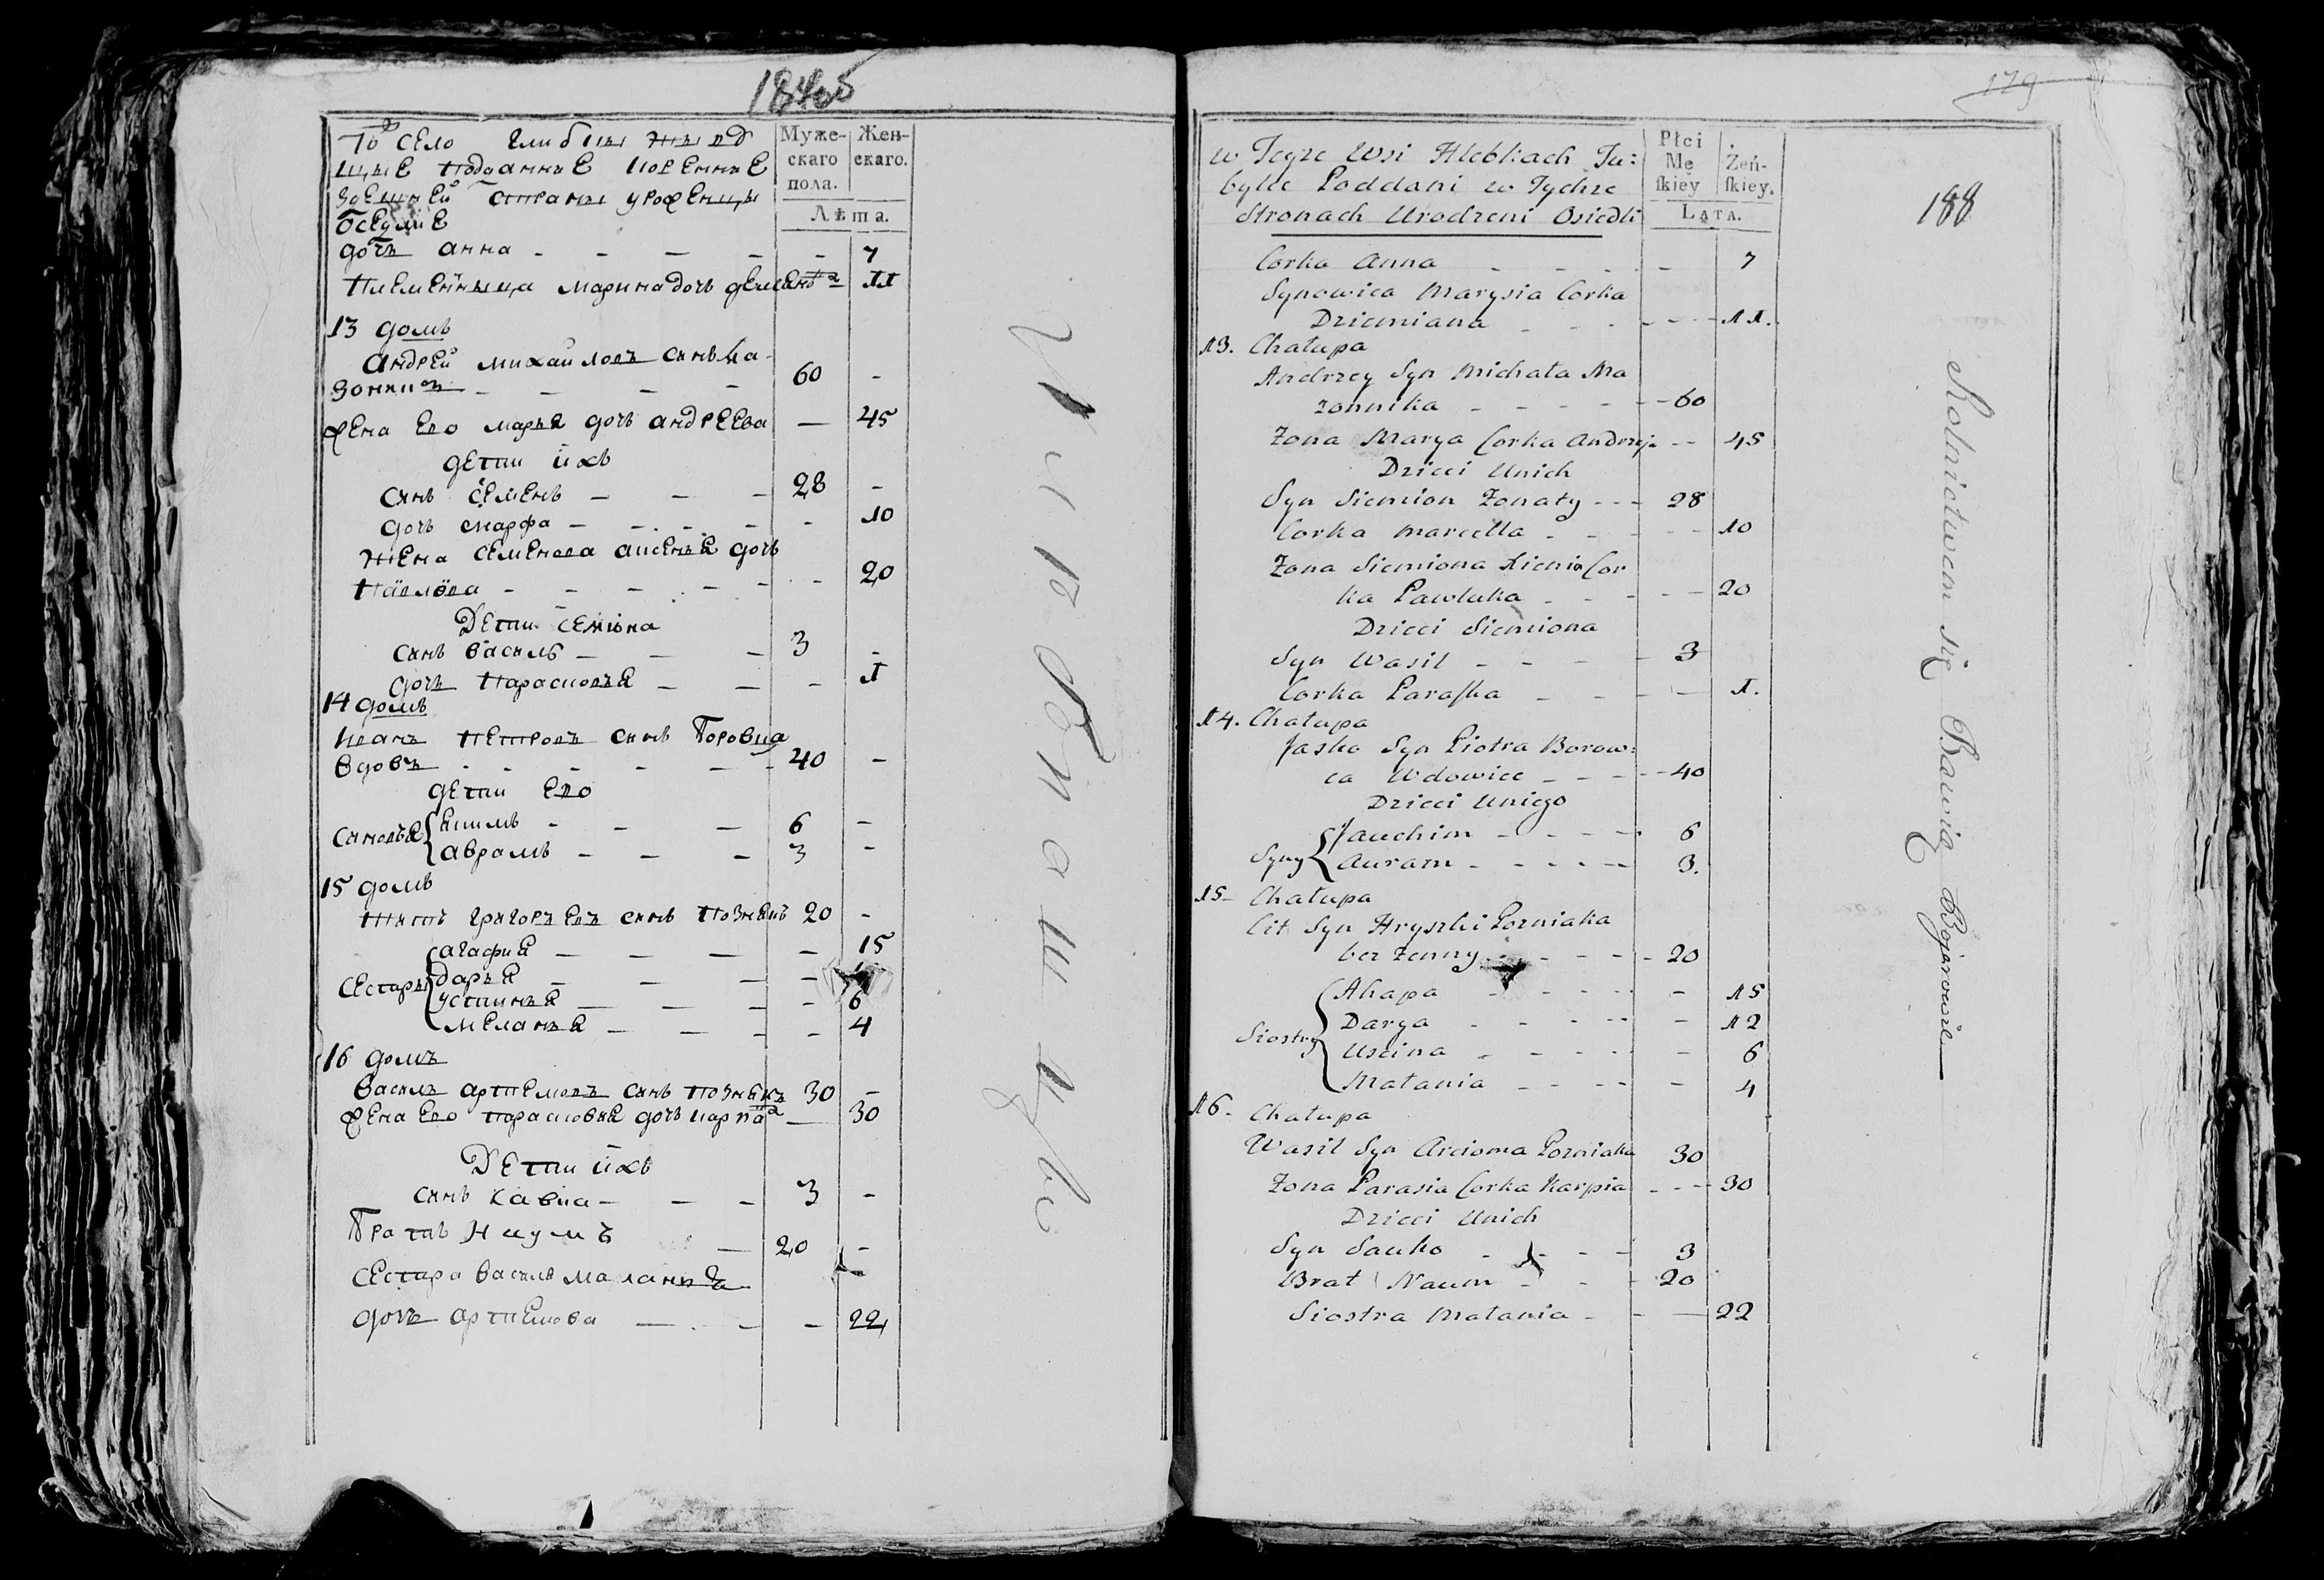 то село
подданные коренные
здешней страны уроженцы
оседлые
Муже-
скаго
пола.
Жен-
скаго.
Лѣта.
дочъ анна - - - - - 7
племенныца марина дочъ 11
13 домъ
андрей михаиловъ синъ ма-
зонникъ - - - - 60 -
жена его маръя дочъ андреева — 45
дети ихъ
синъ семенъ — — — 28 -
дочъ марфа — — — - 10
жена семенова дочъ
павлова - - - - - 20
дети семиона
синъ василъ — — — 3 -
дочъ парасковъя — — - 1
14 домъ
иванъ петровъ синъ боровца
вдовъ - - - - - 40 -
дети его
синовъя якимъ - - — 6 -
аврамъ — — — 3 -
15 домъ
титъ григоръевъ синъ познякъ 20 -
сестры агафия — — — — 15
даръя — — — —
устинъя — — — - 6
меланъя — — — - 4
16 домъ
василъ артемовъ синъ познякъ 30 -
жена его парасковъя дочъ карпа — 30
дети ихъ
синъ савка — — — 3 -
братъ наумъ — 20 -
сестра василя маланъя
дочъ артемова — - — - 22
179
188
w Teyże Wsi Hlebkach Tu=
bylce Poddani w Tychże
Stronach Urodzeni Osiedli
Płci
Mę
skiey
Żeń-
skiey.
Lata.
Corka Anna - - - - - 7
Synowica Marysia Corka
Dziemiana - - - - 11.
13. Chałupa
Andrzey Syn Michała Ma
zonnika - - - - - 60
Żona Marya Corka Andrzeja - - 45
Dzieci Unich
Syn Siemion Żonaty - - - 28
Corka Marcella - - - - - 10
Żona Siemiona Xienia Cor
ka Pawluka - - - - - 20
Dzieci Siemiona
Syn Wasil - - - - 3
Corka Paraska - - - - 1.
14. Chałupa
Jasko Syn Piotra Borow=
ca Wdowiec - - - - 40
Dzieci Uniego
Syny Jauchim - - - - 6
Auram - - - - - 3.
15 Chałupa
Cit Syn Hryszki Pozniaka
bez Żenny - - - - - 20
Siostry Ahapa - - - - - 15
Darya - - - - - 12
Uscina - - - - - 6
Matania - - - - - 4
16. Chałupa
Wasil Syn Arcioma Pozniaka 30
Żona Parasia Corka Karpia - - - 30
Dzieci Unich
Syn Sauko - - - - 3
Brat Naum - - - 20
Siostra Matania - - - 22
Rolnictwem się Bawią Bojarowie